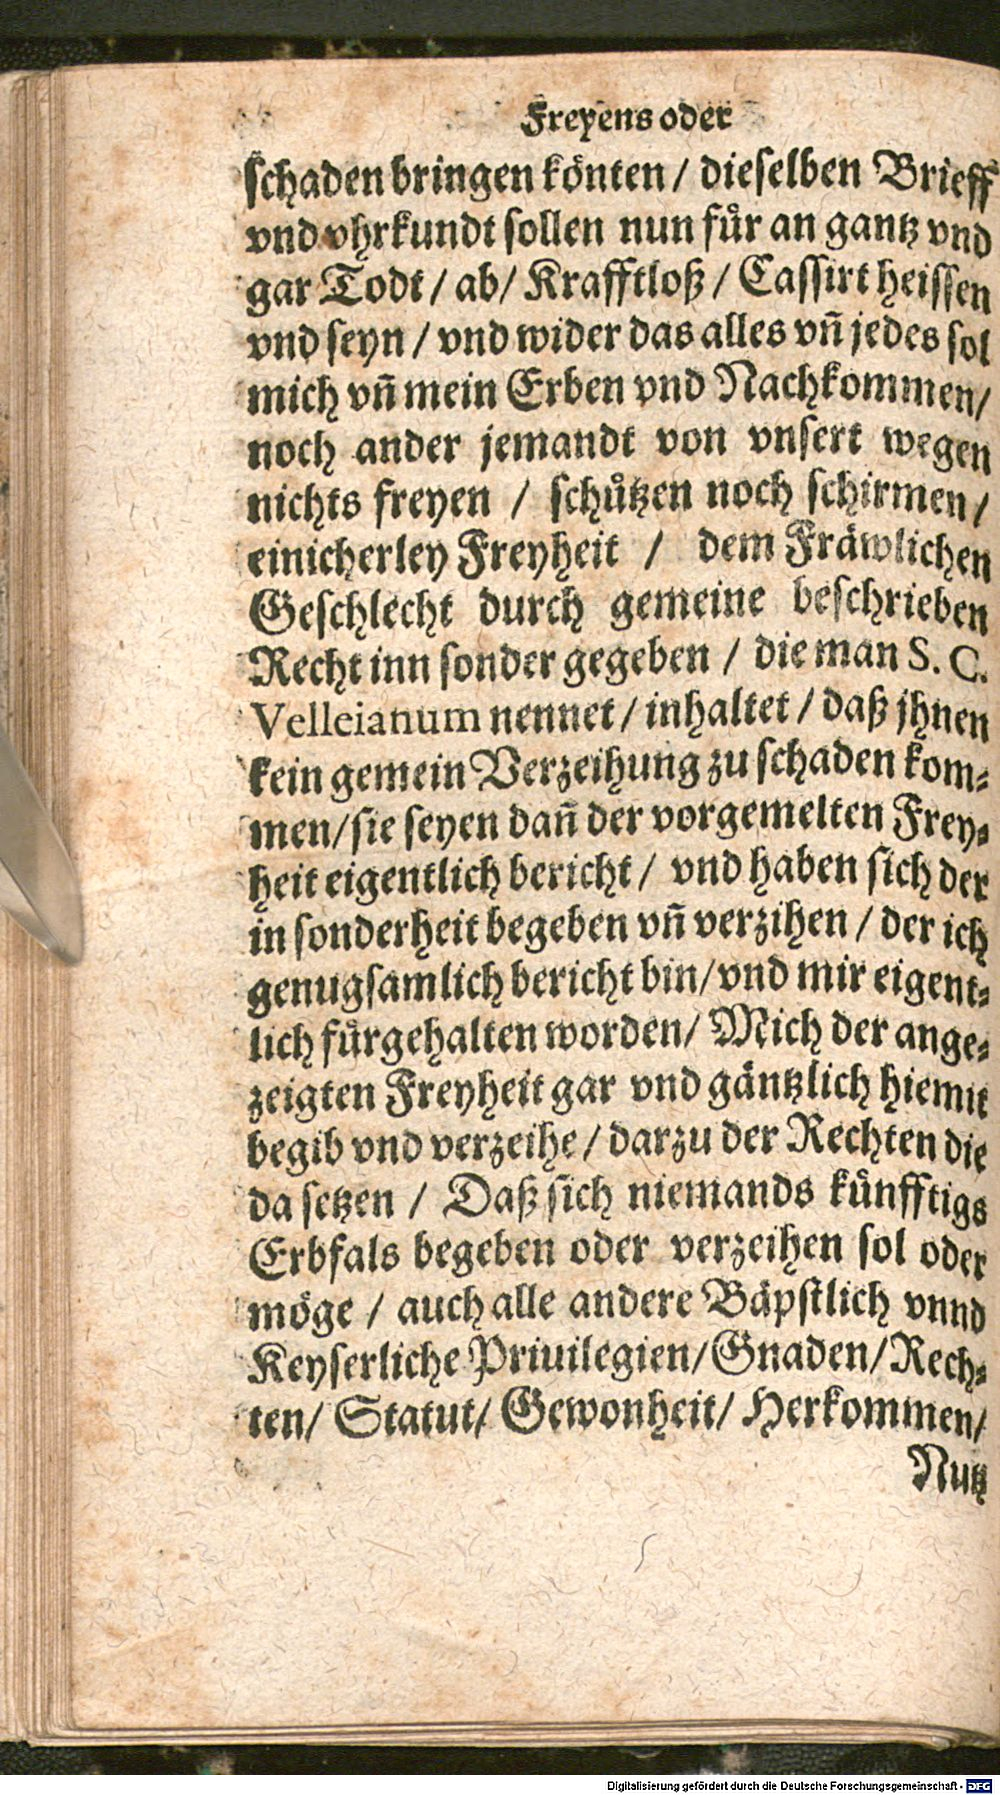 Freyens oder
schaden bringen könten / dieselben Brieff
vnd vhrkundt sollen nun fuͤr an gantz vnd
gar Todt / ab / Krafftloß / Cassirt heissen
vnd seyn / vnd wider das alles vñ jedes sol
mich vñ mein Erben vnd Nachkommen /
noch ander jemandt von vnsert wegen
nichts freyen / schuͤtzen noch schirmen /
einicherley Freyheit / dem Fräwlichen
Geschlecht durch gemeine beschrieben
Recht inn sonder gegeben / die man S. C.
Velleianum nennet / inhaltet / daß jhnen
kein gemein Verzeihung zu schaden kom-
men / sie seyen dañ der vorgemelten Frey-
heit eigentlich bericht / vnd haben sich der
in sonderheit begeben vñ verzihen / der ich
genugsamlich bericht bin / vnd mir eigent-
lich fuͤrgehalten worden / Mich der ange-
zeigten Freyheit gar vnd gäntzlich hiemit
begib vnd verzeihe / darzu der Rechten die
da setzen / Daß sich niemands künfftigs
Erbfals begeben oder verzeihen sol oder
möge / auch alle andere Bäpstlich vnnd
Keyserliche Priuilegien / Gnaden / Rech-
ten / Statut / Gewonheit / Herkommen /
Nutz
Digitalisierung gefördert durch die Deutsche Forschungsgemeinschaft - DFG